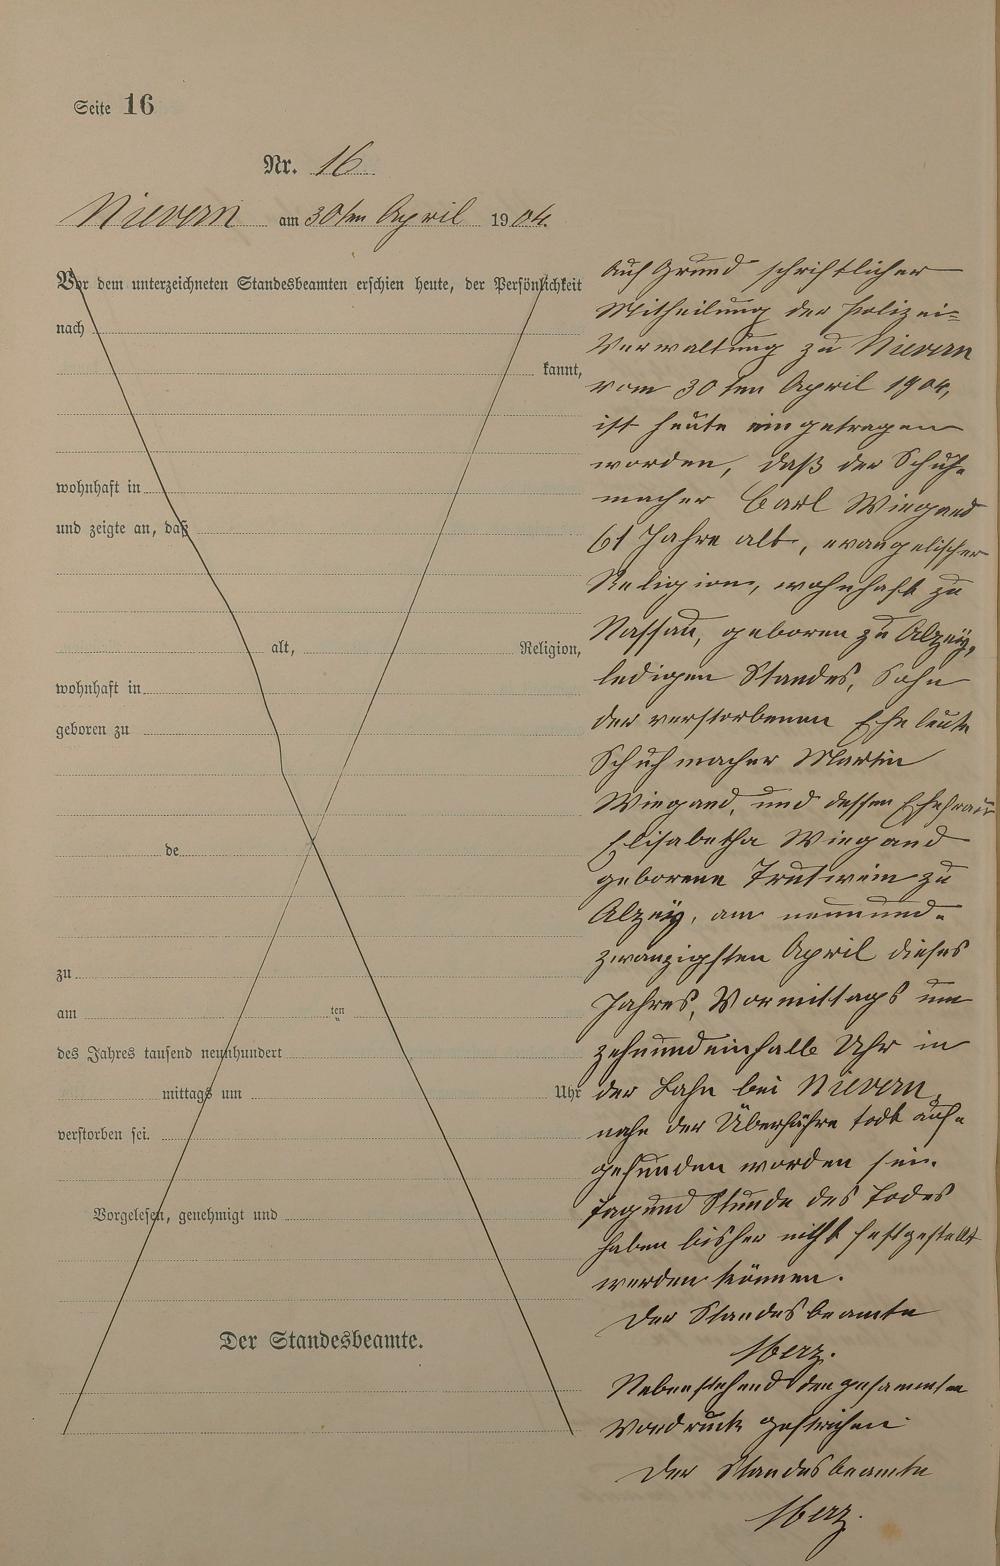 Seite 16
Nr. 16
Nievern am 30ten April 1904.
Vor dem unterzeichneten Standesbeamten erschien heute, der Persönlichkeit
nach
kannt,
wohnhaft in
und zeigte an, daß
alt, Religion,
wohnhaft in
geboren zu
de
zu
am ten
des Jahres tausend neunhundert
mittags um Uhr
verstorben sei.
Vorgelesen, genehmigt und
Der Standesbeamte.
Auf Grund schriftlicher
Mittheilung der Polizei=
Verwaltung zu Nievern
vom 30ten April 1904,
ist heute eingetragen
worden, daß der Schuh=
macher Carl Wiegand
61 Jahre alt, evangelischer
Religion, wohnhaft zu
Nassau, geboren zu Alzey,
ledigen Standes, Sohn
der verstorbenen Eheleute
Schuhmacher Martin
Wiegand, und dessen Ehefrau
Elisabetha Wiegand
geborene Trutwein zu
Alzey, am neunund=
zwanzigsten April dieses
Jahres, Vormittags um
zehnundeinhalb Uhr in
der Lahn bei Nievern,
nahe der Überführe todt auf=
gefunden worden sei.
Tag und Stunde des Todes
haben bisher nicht festgestellt
werden können.
Der Standesbeamte
Merz.
Nebenstehend den gesammten
Vordruck gestrichen.
Der Standesbeamte
Merz.